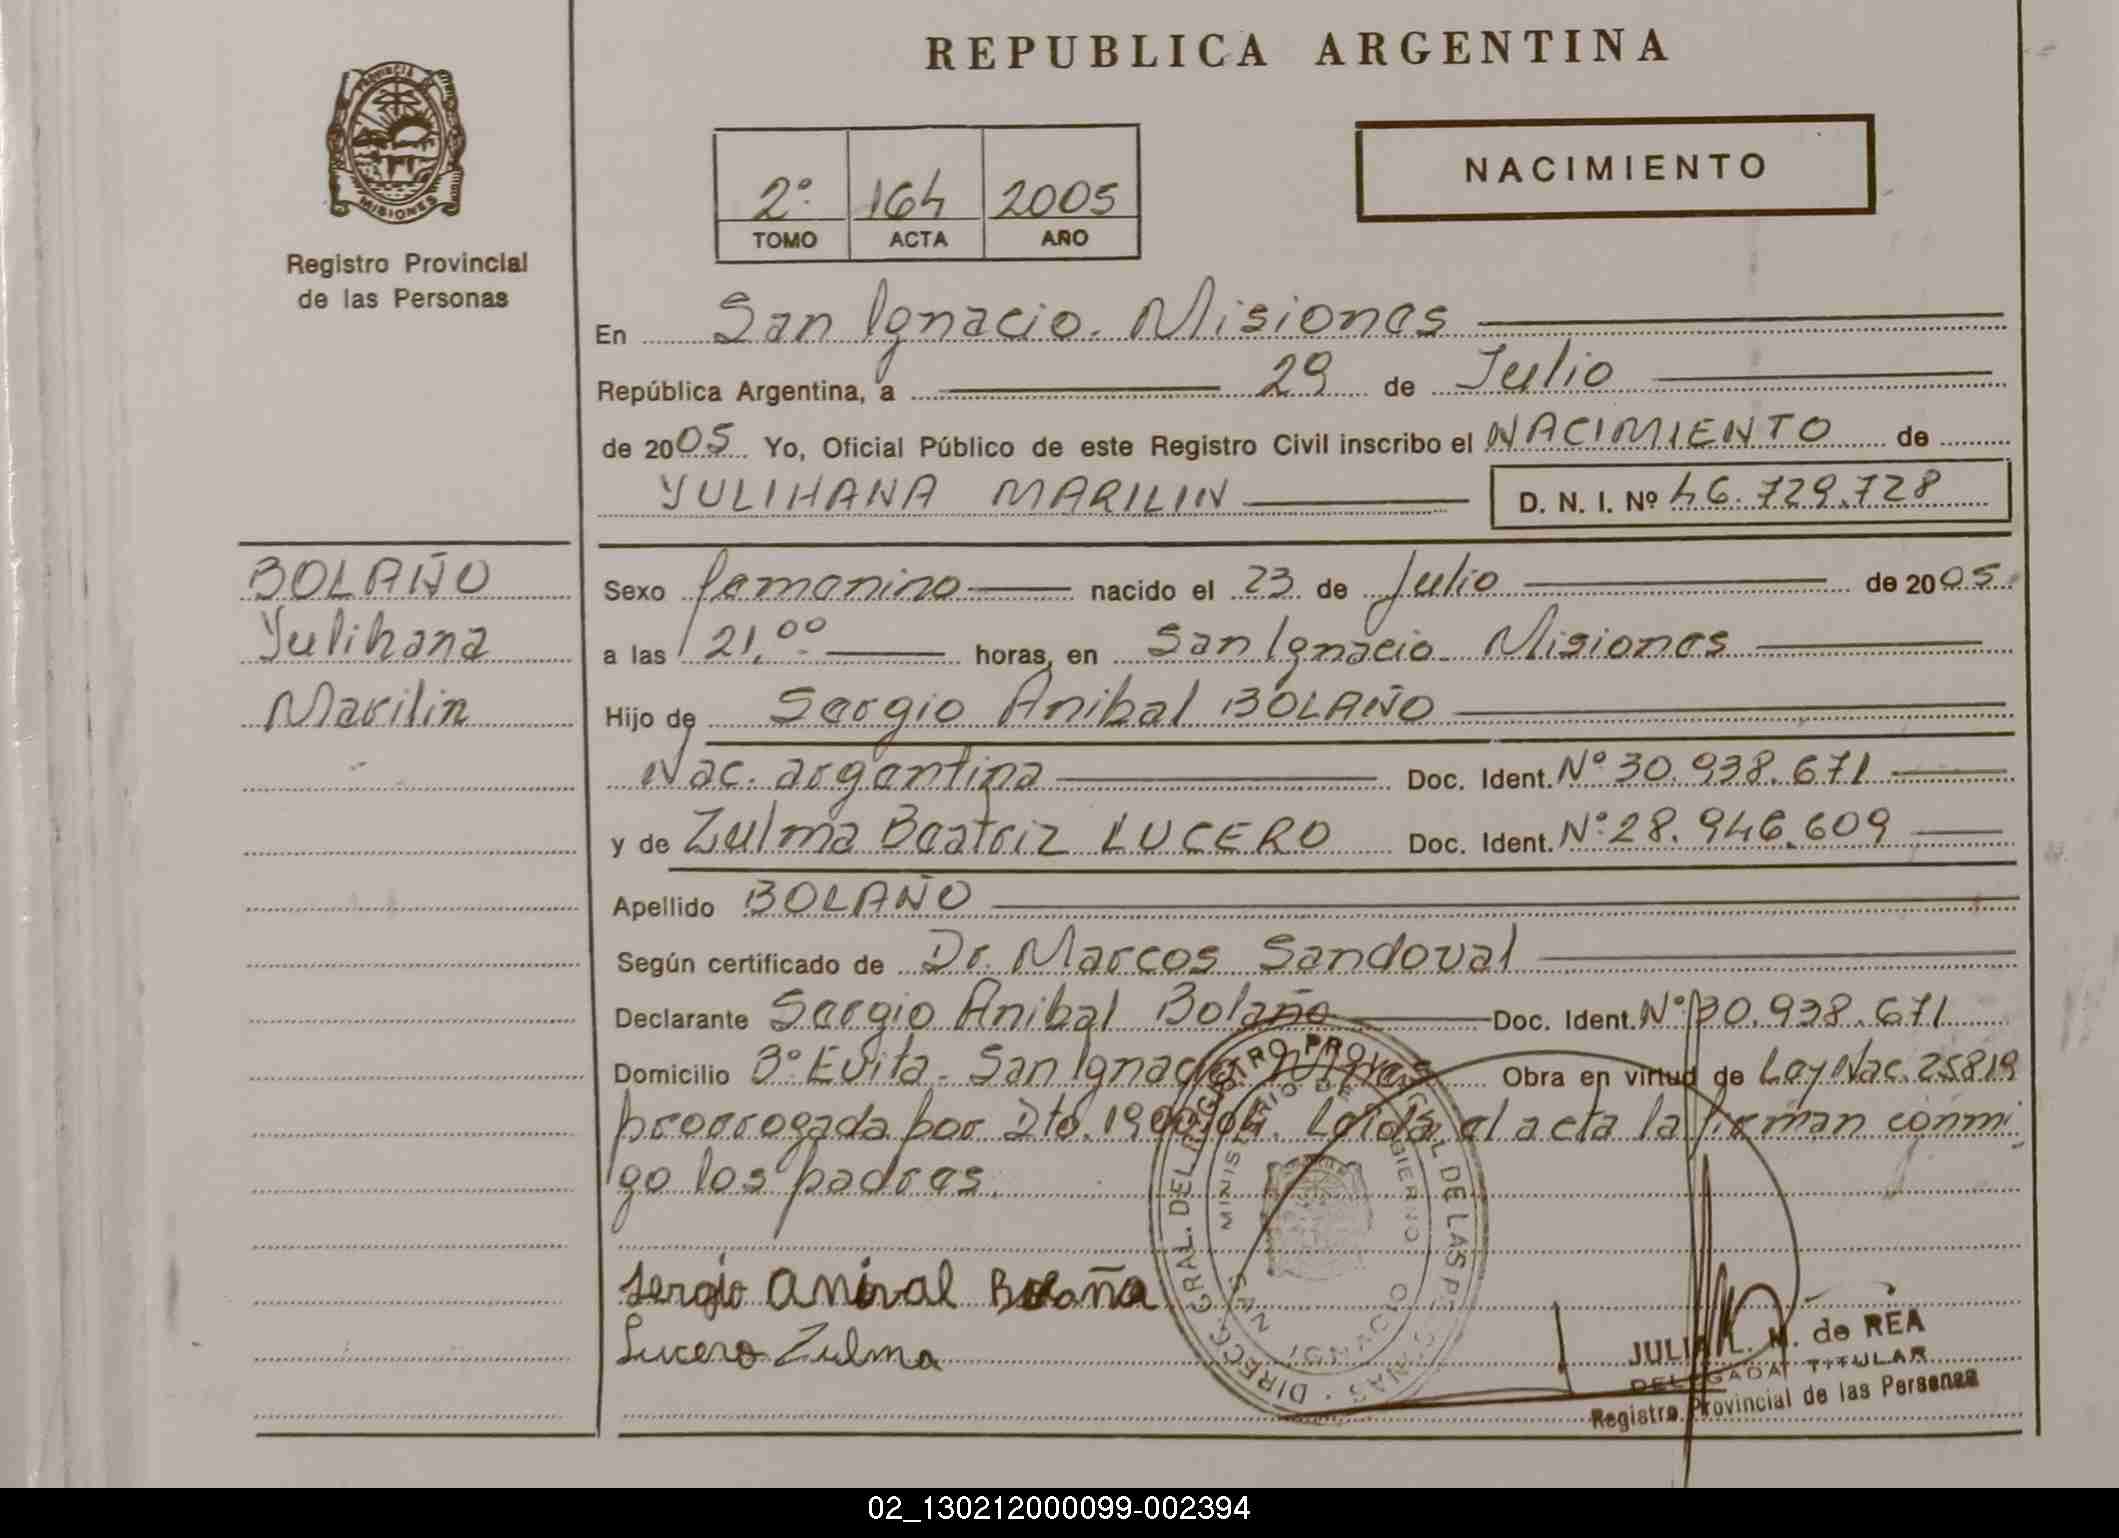 REPUBLICA ARGENTINA
PROVINCIA DE MISIONES
Registro Provincial
de las Personas
2º 164 2005
TOMO ACTA AÑO
NACIMIENTO
En San Ignacio. Misiones
República Argentina, a 29 de Julio
de 2005 Yo, Oficial Público de este Registro Civil inscribo el NACIMIENTO de
YULIHANA MARILIN D. N. I. Nº 46.729.728
BOLAÑO
Yulihana
Marilin
Sexo femenino nacido el 23 de Julio de 2005
a las 21.00 horas, en San Ignacio Misiones
Hijo de Sergio Anibal BOLAÑO
Nac. argentina Doc. Ident. Nº 30.938.671
y de Zulma Beatriz LUCERO Doc. Ident. Nº 28.946.609
Apellido BOLAÑO
Según certificado de Dr. Marcos Sandoval
Declarante Sergio Anibal Bolaño Doc. Ident. Nº 30.938.671
Domicilio Bº Evita - San Ignacio Mnes Obra en virtud de Ley Nac. 25819
prorrogada por Dto. 1900/04. Leída el acta la firman conmi
go los padres.
Sergio Anival Bolaño
Lucero Zulma
DIRECC. GRAL. DEL REGISTRO PROVINCIAL DE LAS PERSONAS
MINISTERIO DE GOBIERNO
SAN IGNACIO
JULIA L. M. de REA
DELEGADA TITULAR
Registro Provincial de las Personas
02_130212000099-002394